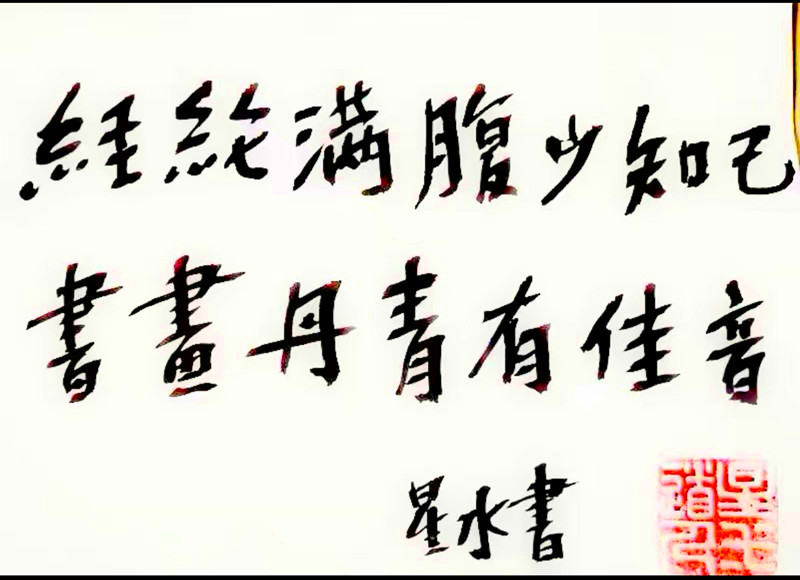 経纶满腹少知己
書畫丹青有佳音
星水書